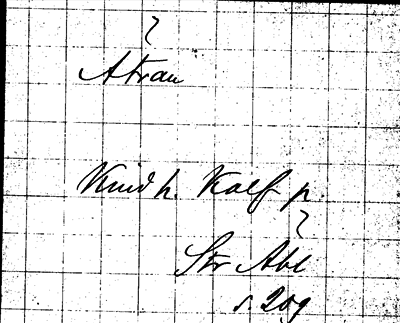 ?
Atrau
Kind h. Kalf p.
?
Str Abl
s. 209